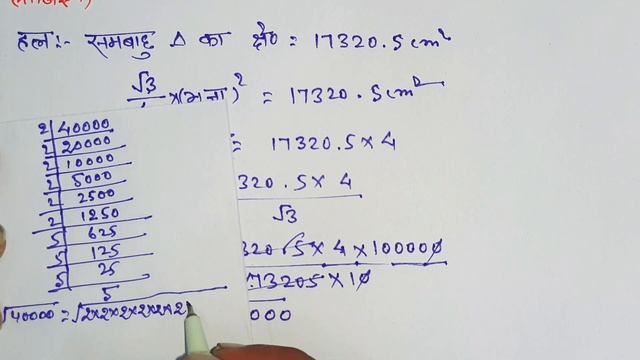 हल :- समबाहु Δ का क्षे० = 17320.5 cm²
√3 ×(भुजा)² = 17320.5 cm²
= 17320.5 × 4
320.5 × 4
√3
320.5 × 4 × 100000
73205 × 10
000
2 | 40000
2 | 20000
2 | 10000
2 | 5000
2 | 2500
2 | 1250
5 | 625
5 | 125
5 | 25
5
√40000 = √2×2×2×2×2×2